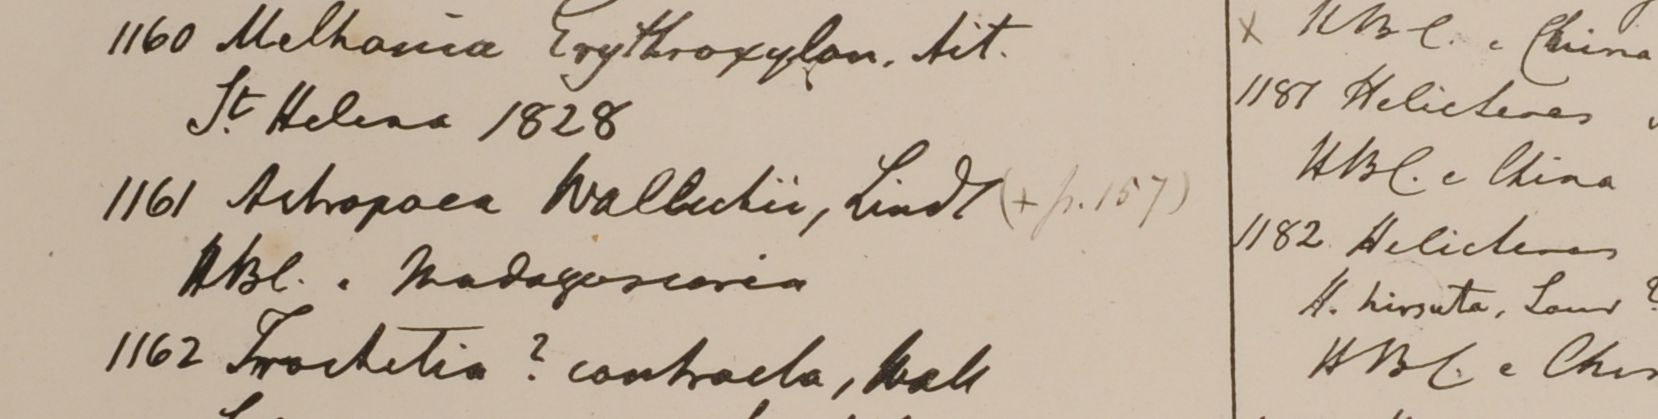 1160 Melhania Erythroxylon, Ait.
St. Helena 1828
1161 Astrapaea Wallichii, Lindl (+ p. 157)
HBC. e Madagascaria
1162 Trochetia ? contracta, Wall
x HBC. e China
1181 Helicteres
HBC. e China
1182 Helicteres
H. hirsuta, Lour ?
HBC. e Chin